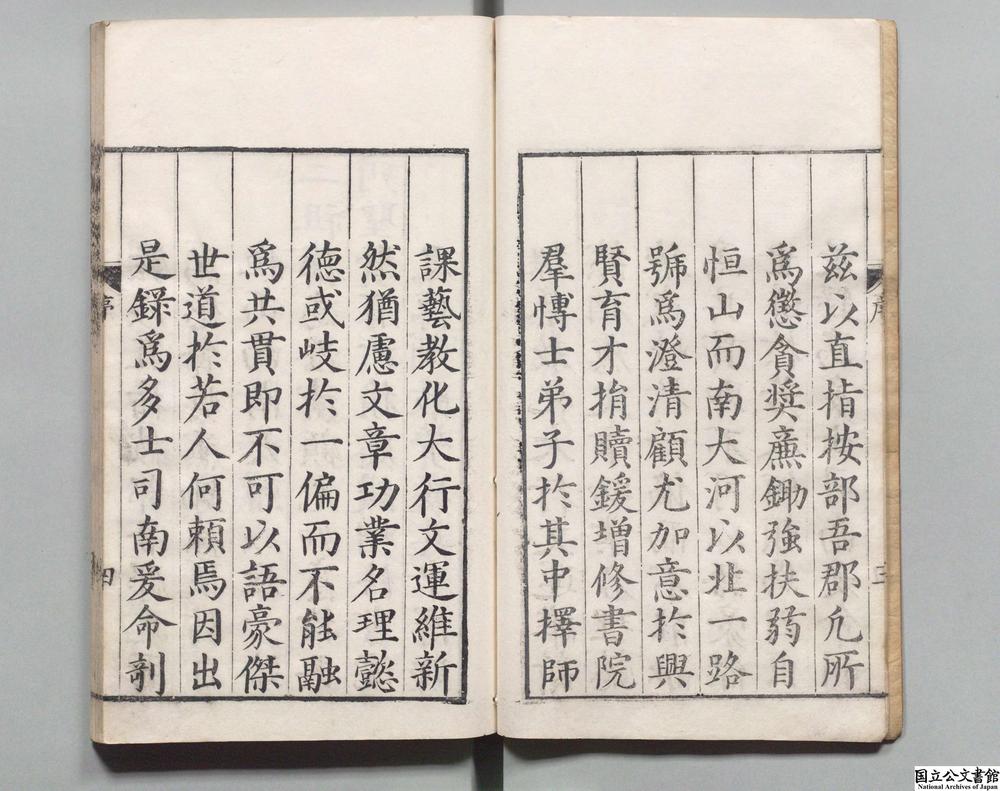 序
三
茲以直指按部吾郡凢所
爲懲貪奬廉鋤強扶弱自
恒山而南大河以北一路
號爲澄清顧尤加意於興
賢育才捐贖鍰增修書院
羣博士弟子於其中擇師
課藝教化大行文運維新
然猶慮文章功業名理懿
德或岐於一偏而不能融
爲共貫即不可以語豪傑
世道於若人何賴焉因出
是錄爲多士司南爰命剞
序
四
国立公文書館
National Archives of Japan